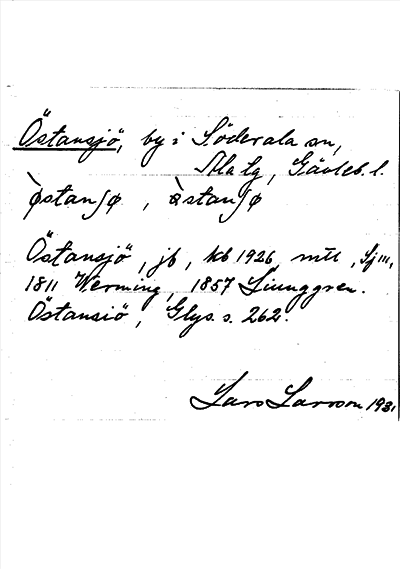 Östansjö, by i Söderala sn,
Ala tg, Gävleb. l.
östanʃø, östanʃø
Östansjö, jb, kb 1926, mtl, Sj III,
1811 Werming, 1857 Ljunggren.
Östansiö, Glys. s. 262.
Lars Larsson 1931